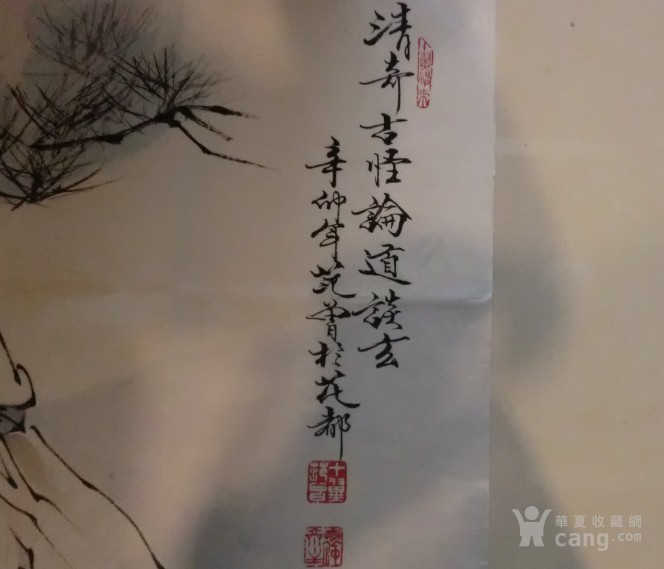 清奇古怪論道談玄
辛卯年范曾於花都
華夏收藏網
cang.com